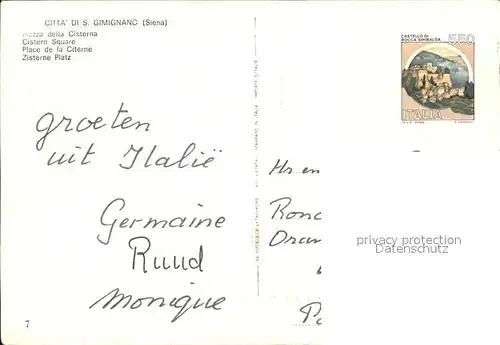 CITTA' DI S. GIMIGNANO (Siena)
Piazza della Cisterna
Cistern Square
Place de la Citerne
Zisterne Platz
CASTELLO DI
ROCCA SINIBALDA
550
ITALIA
groeten
uit Italië
Germaine
Ruud
Monique
Hr en
privacy protection
Datenschutz
7